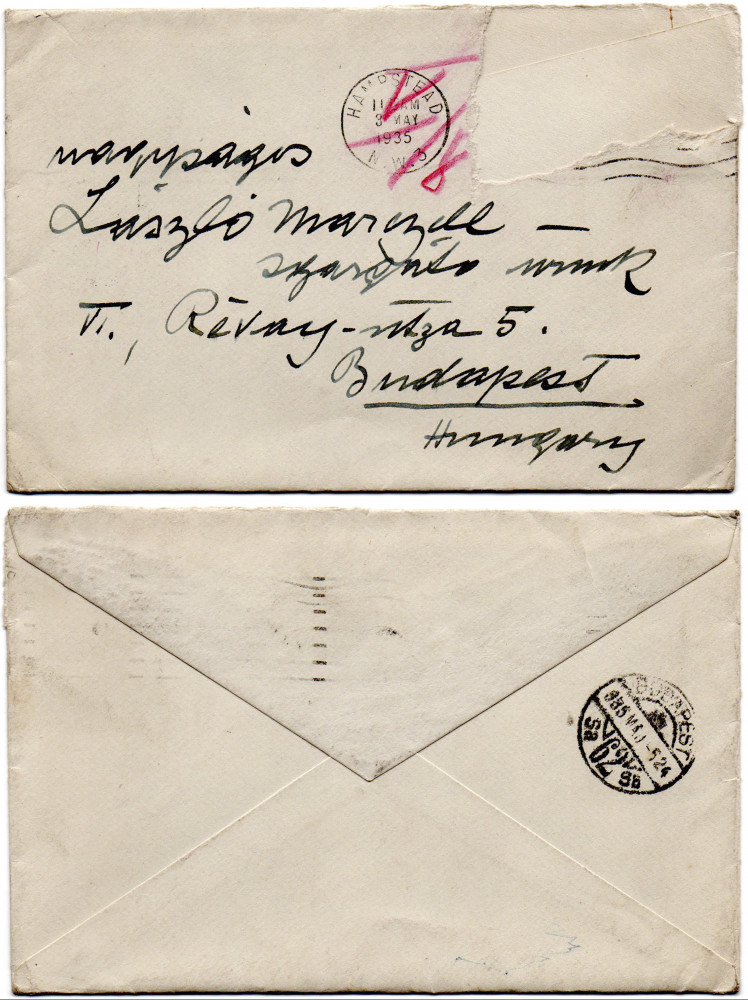 HAMPSTEAD
11 AM
3 MAY
1935
N.W.3
nagyságos
László Marczell —
úrnak
VI., Révay-utza 5.
Budapest
Hungary
BUDAPEST
935 MAJ. -5.24
62
5a 5b